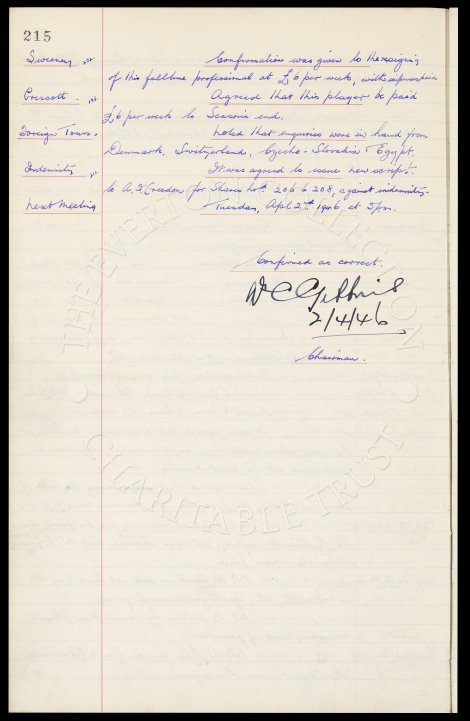 215
Sweeney. Confirmation was given to the signing
of this fulltime professional at £6 per week, with expenses paid
Prescott. Agreed that this player be paid
£6 per week to Seasons end.
Foreign Tours. Noted that enquiries were in hand from
Denmark, Switzerland, Czecho-Slovakia & Egypt.
Indemnity. It was agreed to issue new script
to A. J. Creedon for Shares Nos. 206 to 208, against indemnity.
Next Meeting Tuesday, Apl 2nd, 1946 at 5pm.
Confirmed as correct.
2/4/46
Chairman.
THE EVERTON COLLECTION
CHARITABLE TRUST